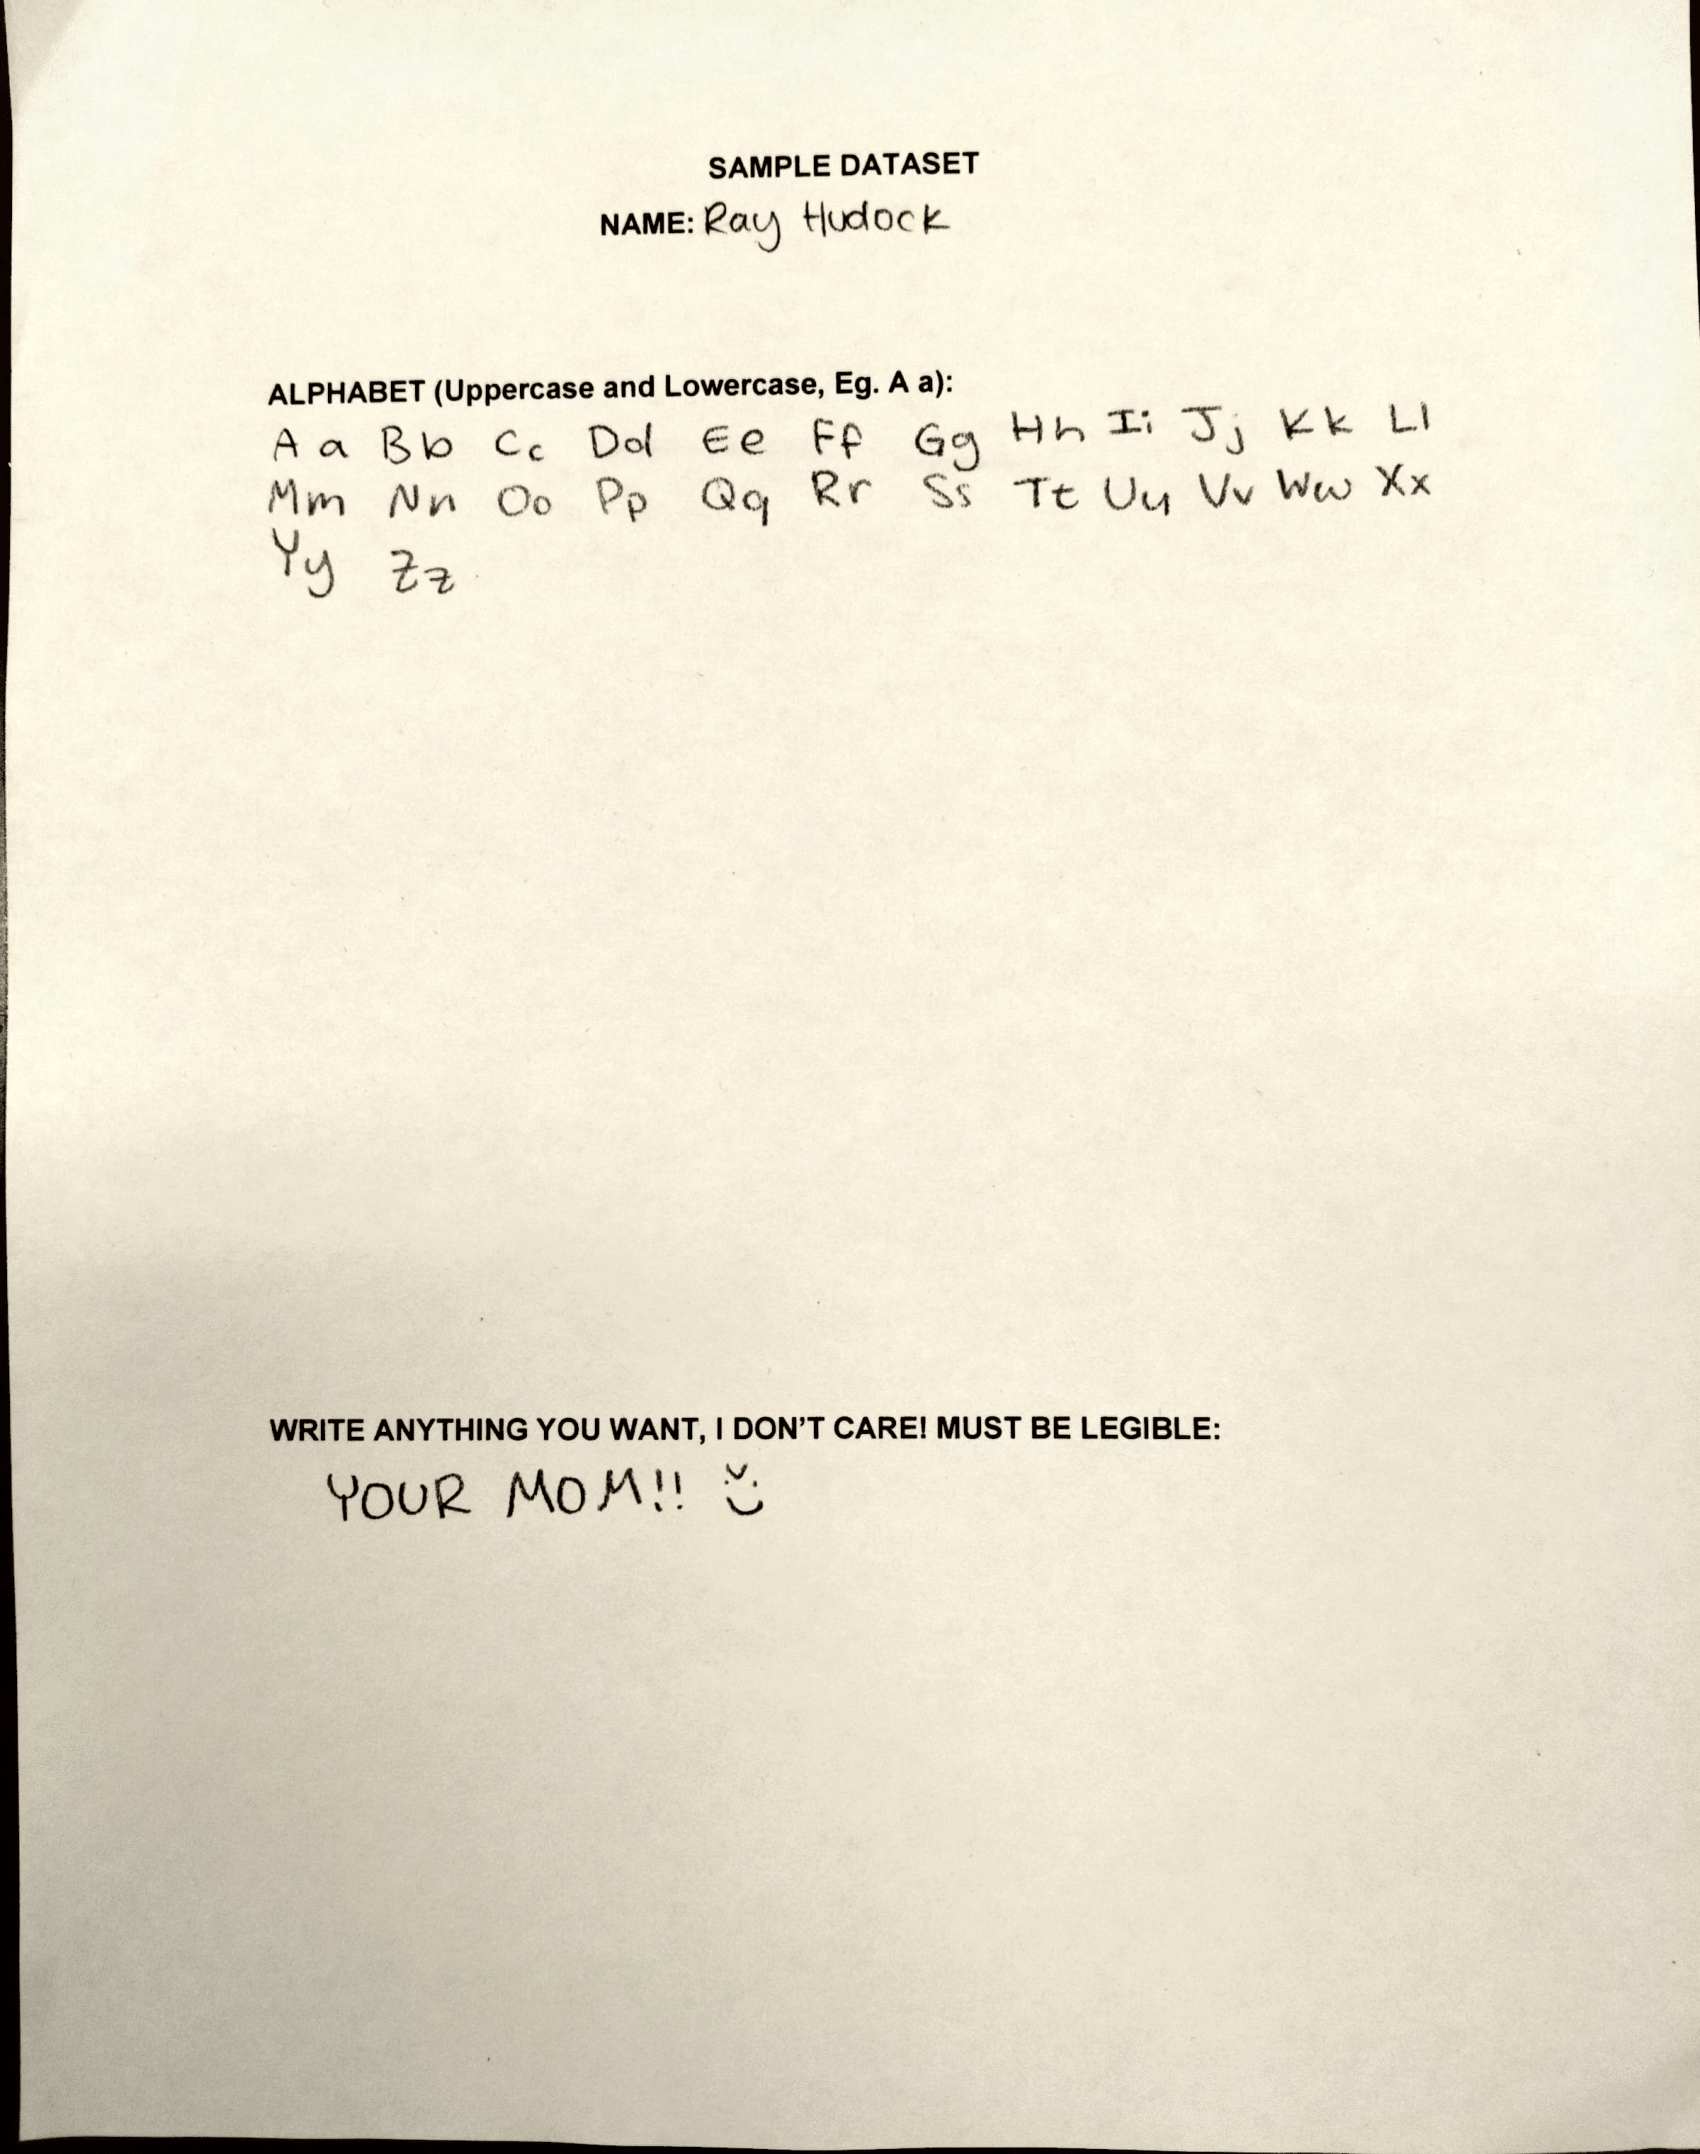 SAMPLE DATASET
NAME: Ray Hudock
ALPHABET (Uppercase and Lowercase, Eg. A a):
A a Bb Cc Dd Ee Ff Gg Hh Ii Jj Kk Ll
Mm Nn Oo Pp Qq Rr Ss Tt Uu Vv Ww Xx
Yy Zz
WRITE ANYTHING YOU WANT, I DON'T CARE! MUST BE LEGIBLE:
YOUR MOM!!